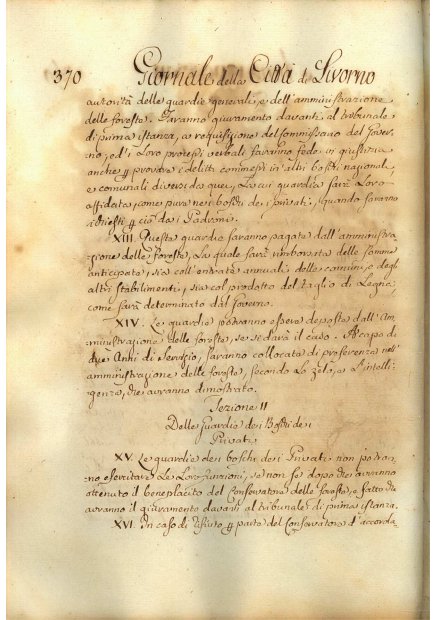 370 Giornale della Città di Livorno
autorità delle guardie generali, e dell'amministrazione
delle foreste. Faranno giuramento davanti al tribunale
di prima stanza, a requisizione del Commissario del Gover-
no, ed i Loro processi verbali faranno fede in giustizia
anche p provare i delitti commessi in altri boschi nazionali,
e comunali diversi da quei, La cui guardia sarà Loro
affidata, come pure nei boschi dei privati, quando saranno
richiesti p ciò dai Padroni.
XIII. Queste guardie saranno pagate dall'amministra-
zione delle foreste, La quale sarà rimborsata delle somme
anticipate, sia coll'entrate annuali delle comuni, e degli
altri stabilimenti, sia col prodotto del taglio di Legna,
come sarà determinato dal Governo.
XIV. Le guardie potranno essere deposte dall'Am-
ministrazione delle foreste, se se darà il caso. A capo di
due Anni di servizio, saranno collocate di preferenza nell'
amministrazione delle foreste, secondo Lo zelo, e L'intelli-
genza, che avranno dimostrato.
Sezione II
Delle Guardie dei Boschi dei
Privati
XV. Le guardie dei boschi dei Privati non potran-
no esercitare Le Loro funzioni, se non se dopo che avranno
ottenuto il beneplacito del Conservatore delle foreste, e fatto che
avranno il giuramento davanti al tribunale di prima istanza.
XVI. In caso di rifiuto p parte del Conservatore d'accorda-